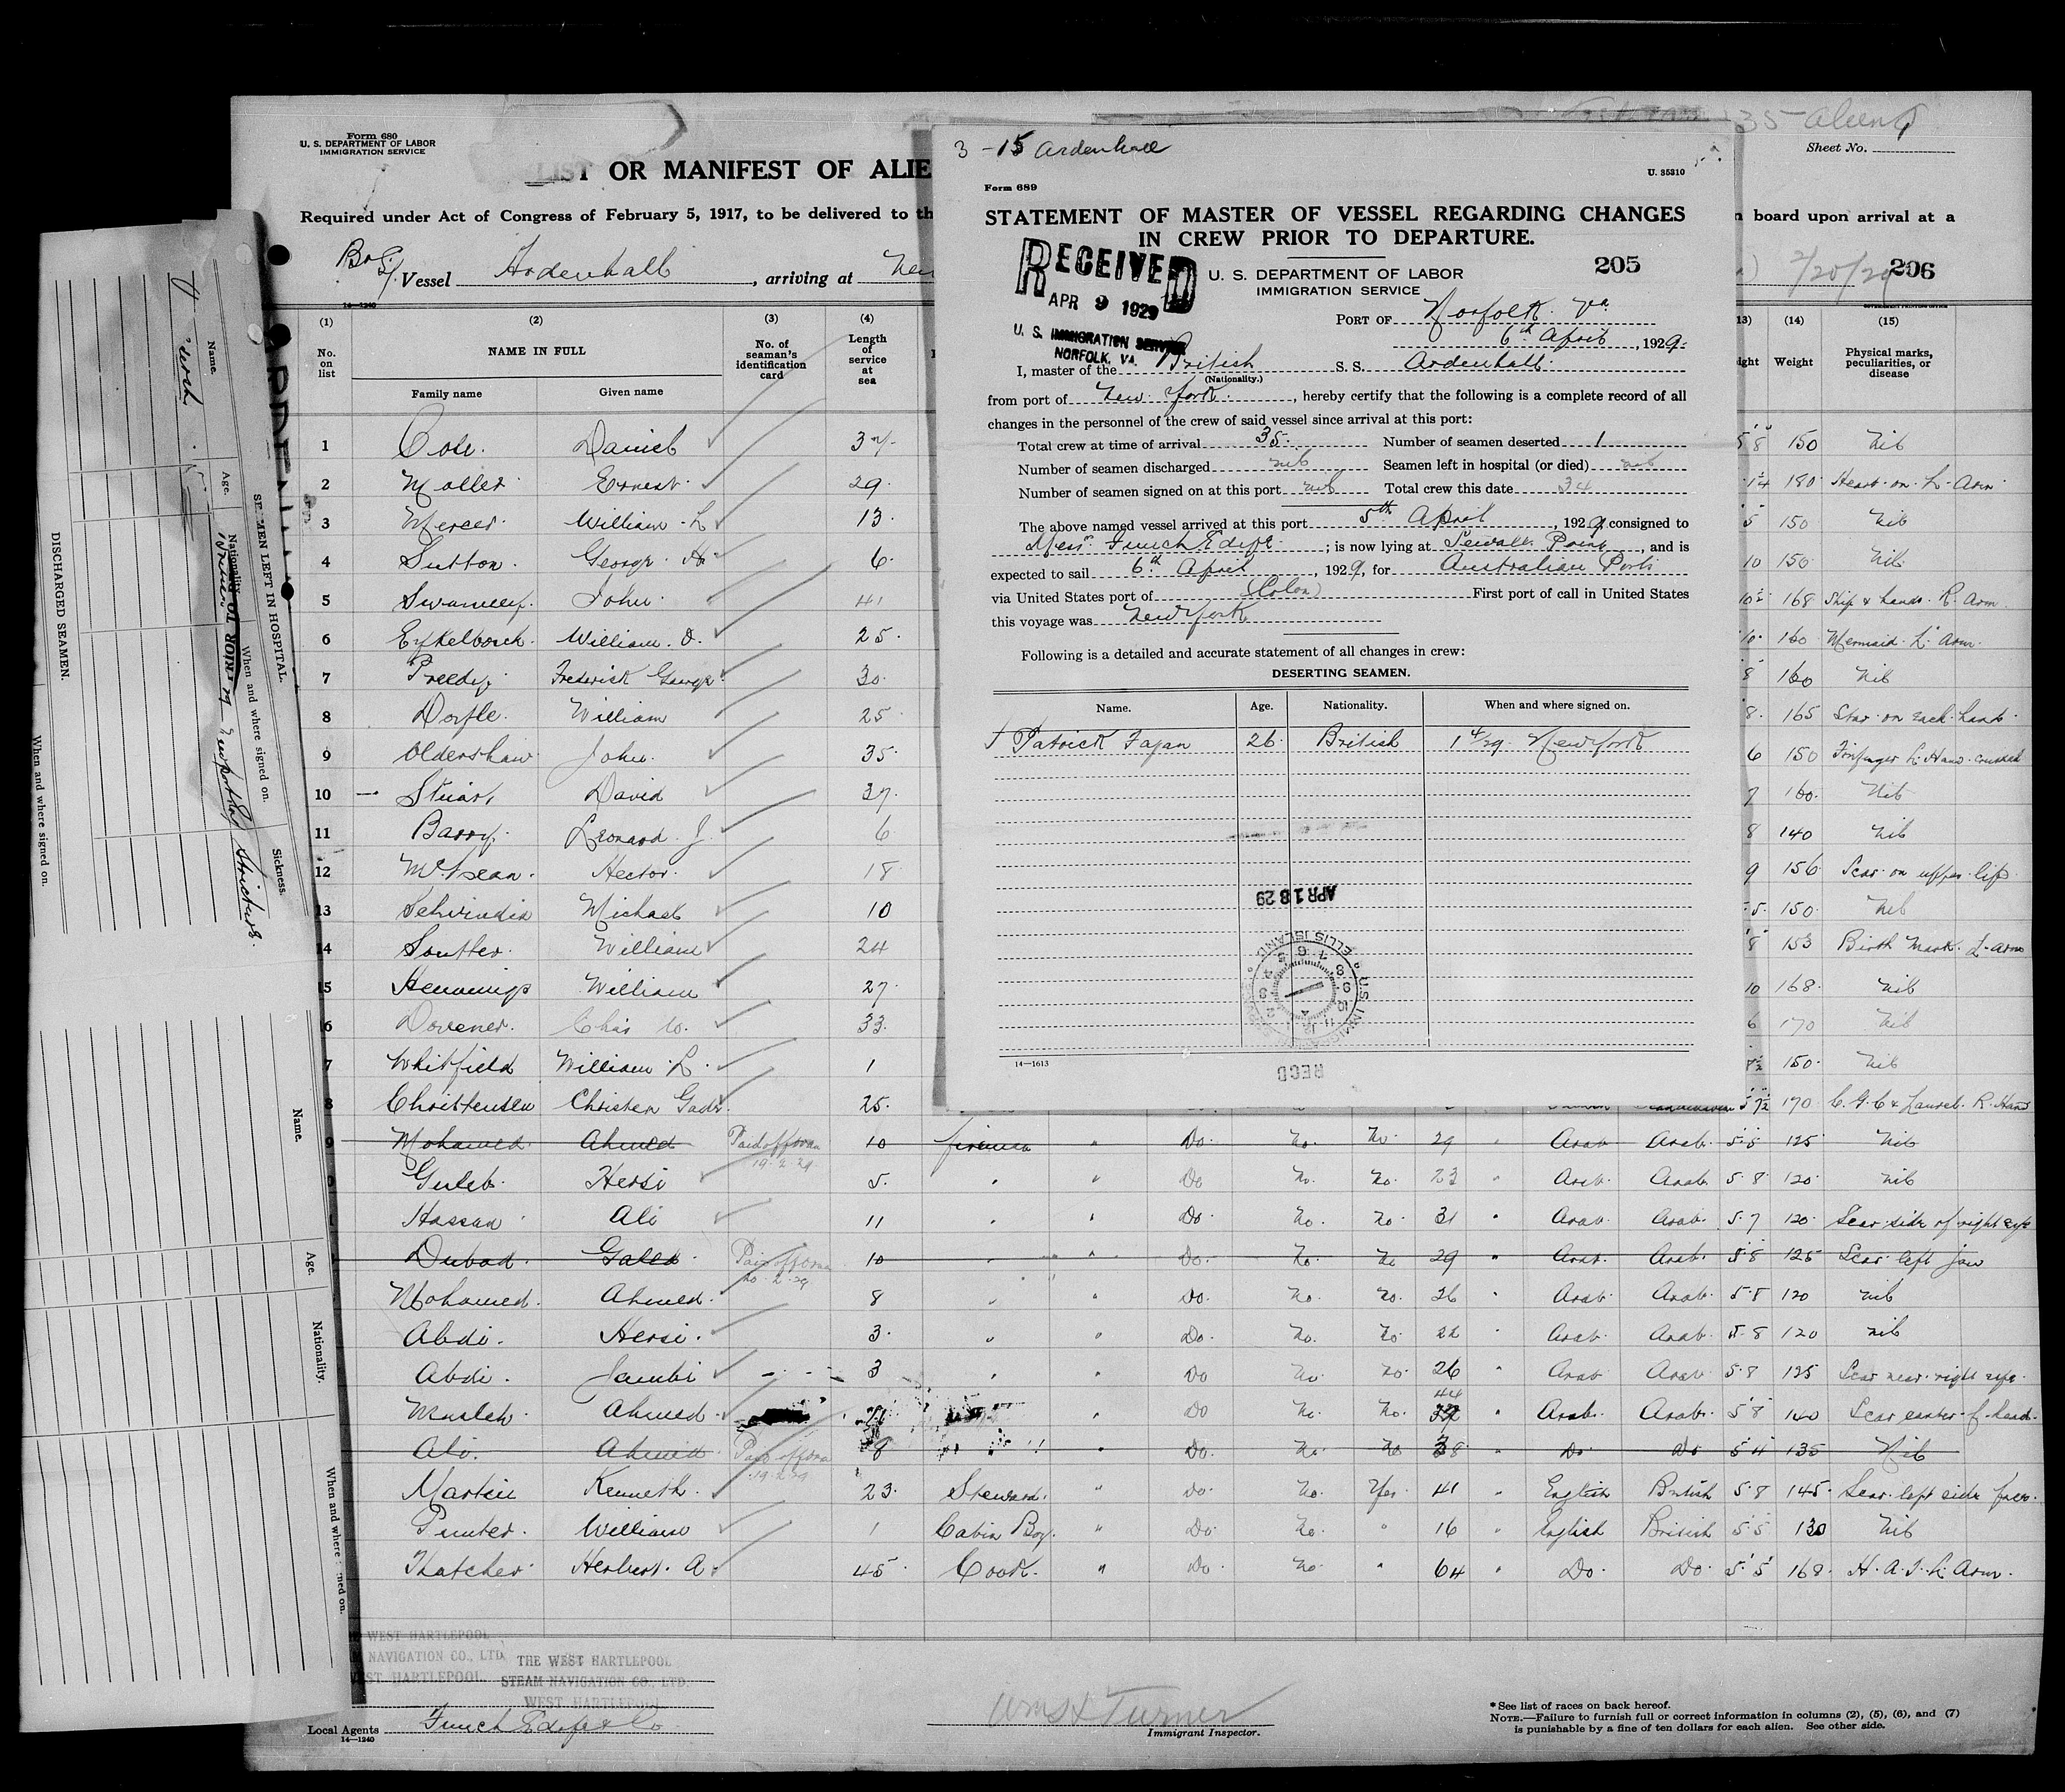 Form 680
U. S. DEPARTMENT OF LABOR
IMMIGRATION SERVICE
LIST OR MANIFEST OF ALIE
35 aliens
Sheet No.
Required under Act of Congress of February 5, 1917, to be delivered to th
n board upon arrival at a
Vessel Ardenhall, arriving at New
2/20/29 206
14—1240
(1) (2) (3) (4) 13) (14) (15)
No. on list
NAME IN FULL
Family name Given name
No. of seaman's identification card
Length of service at sea
ight Weight
Physical marks, peculiarities, or disease
1 Cole. Daniel 34 5 8 150 Nil
2 Moller Ernest 29 180 Heart on L. Arm
3 Mercer William L 13 5 150 Nil
4 Sutton George H 6 10 150 Nil
5 John 41 168 Ship & hands R. Arm
6 William O. 25 160 Mermaid L. Arm
7 Preedy Frederick George 30 8 160 Nil
8 William 25 8 165 Star on each hand
9 Oldershaw John 35 6 150 L. Hand crushed
10 Stuart David 37 7 160 Nil
11 Barry Leonard J 6 8 140 Nil
12 McLean Hector 18 9 156 Scar on upper lip
13 Michael 10 5 150 Nil
14 Soutter William 24 8 153 Birth Mark L. arm
15 Hennings William 27 10 168 Nil
6 Dovener Chas W. 33 6 170 Nil
7 Whitfield William L. 1 150 Nil
8 Christensen Christen 25 5 7½ 170 C.G.C & Laurel R. Hand
9 Mohamed Ahmed Paid off 19.2.29 10 fireman " Do. No. No 29 " Arab Arab 5.5 125 Nil
0 Guleb Hersi 5 " " Do No. No. 23 " Arab Arab 5.8 120 Nil
Hassan Ali 11 " " Do No. No. 31 " Arab Arab 5.7 120 Scar side of right eye
Dubad Galed Paid off 20.2.29 10 " " Do. No. No 29 " Arab Arab 5.8 125 Scar left jaw
Mohamed Ahmed 8 " " Do. No. No. 26 " Arab Arab 5.8 120 Nil
Abdi Hersi 3 " " Do. No. No. 22 " Arab Arab 5.8 120 Nil
Abdi Jambi 3 " " Do No No. 26 " Arab Arab 5.8 125 Scar near right eye
Musleh Ahmed " Do No. No. 44 " Arab Arab 5 8 140 Scar f. head
Ali Ahmed Paid off 19.2.29 8 " Do. No No 38 " Do Do 5 4 135 Nil
Martin Kenneth 23 Steward " Do. No. Yes 41 " English British 5.8 145 Scar left side face
Punter William 1 Cabin Boy " Do. No. " 16 " English British 5 5 130 Nil
Thatcher Herbert A. 45 Cook " Do. No. " 64 " Do. Do. 5 5 168 H.A.T. L. Arm
WEST HARTLEPOOL
NAVIGATION CO., LTD.
WEST HARTLEPOOL
THE WEST HARTLEPOOL
STEAM NAVIGATION CO., LTD.
WEST HARTLEPOOL
Local Agents Funch Edye & Co
14—1240
Wm H Turner
Immigrant Inspector.
* See list of races on back hereof.
NOTE.—Failure to furnish full or correct information in columns (2), (5), (6), and (7)
is punishable by a fine of ten dollars for each alien. See other side.
3 - 15 Ardenhall
Form 689
U. 35310
STATEMENT OF MASTER OF VESSEL REGARDING CHANGES
IN CREW PRIOR TO DEPARTURE.
205
RECEIVED
APR 9 1929
U. S. IMMIGRATION SERVICE
NORFOLK, VA.
U. S. DEPARTMENT OF LABOR
IMMIGRATION SERVICE
PORT OF Norfolk Va
6th April, 1929.
I, master of the British S. S. Ardenhall
(Nationality.)
from port of New York, hereby certify that the following is a complete record of all
changes in the personnel of the crew of said vessel since arrival at this port:
Total crew at time of arrival 35. Number of seamen deserted 1
Number of seamen discharged nil Seamen left in hospital (or died) nil
Number of seamen signed on at this port nil Total crew this date 34
The above named vessel arrived at this port 5th April, 1929, consigned to
Messrs Funch Edye; is now lying at Sewalls Point, and is
expected to sail 6th April, 1929, for Australian Ports
via United States port of (Colon) First port of call in United States
this voyage was New York
Following is a detailed and accurate statement of all changes in crew:
DESERTING SEAMEN.
Name. Age. Nationality. When and where signed on.
1 Patrick Fagan 26 British 1/4/29. New York
APR 18 29
U.S. IMMIGRATION SERVICE ELLIS ISLAND
RECD
14—1613
SEAMEN LEFT IN HOSPITAL.
Name. Age. Nationality. When and where signed on. Sickness.
Stricture.
DISCHARGED SEAMEN.
When and where signed on.
Name.
Age.
Nationality.
When and where signed on.